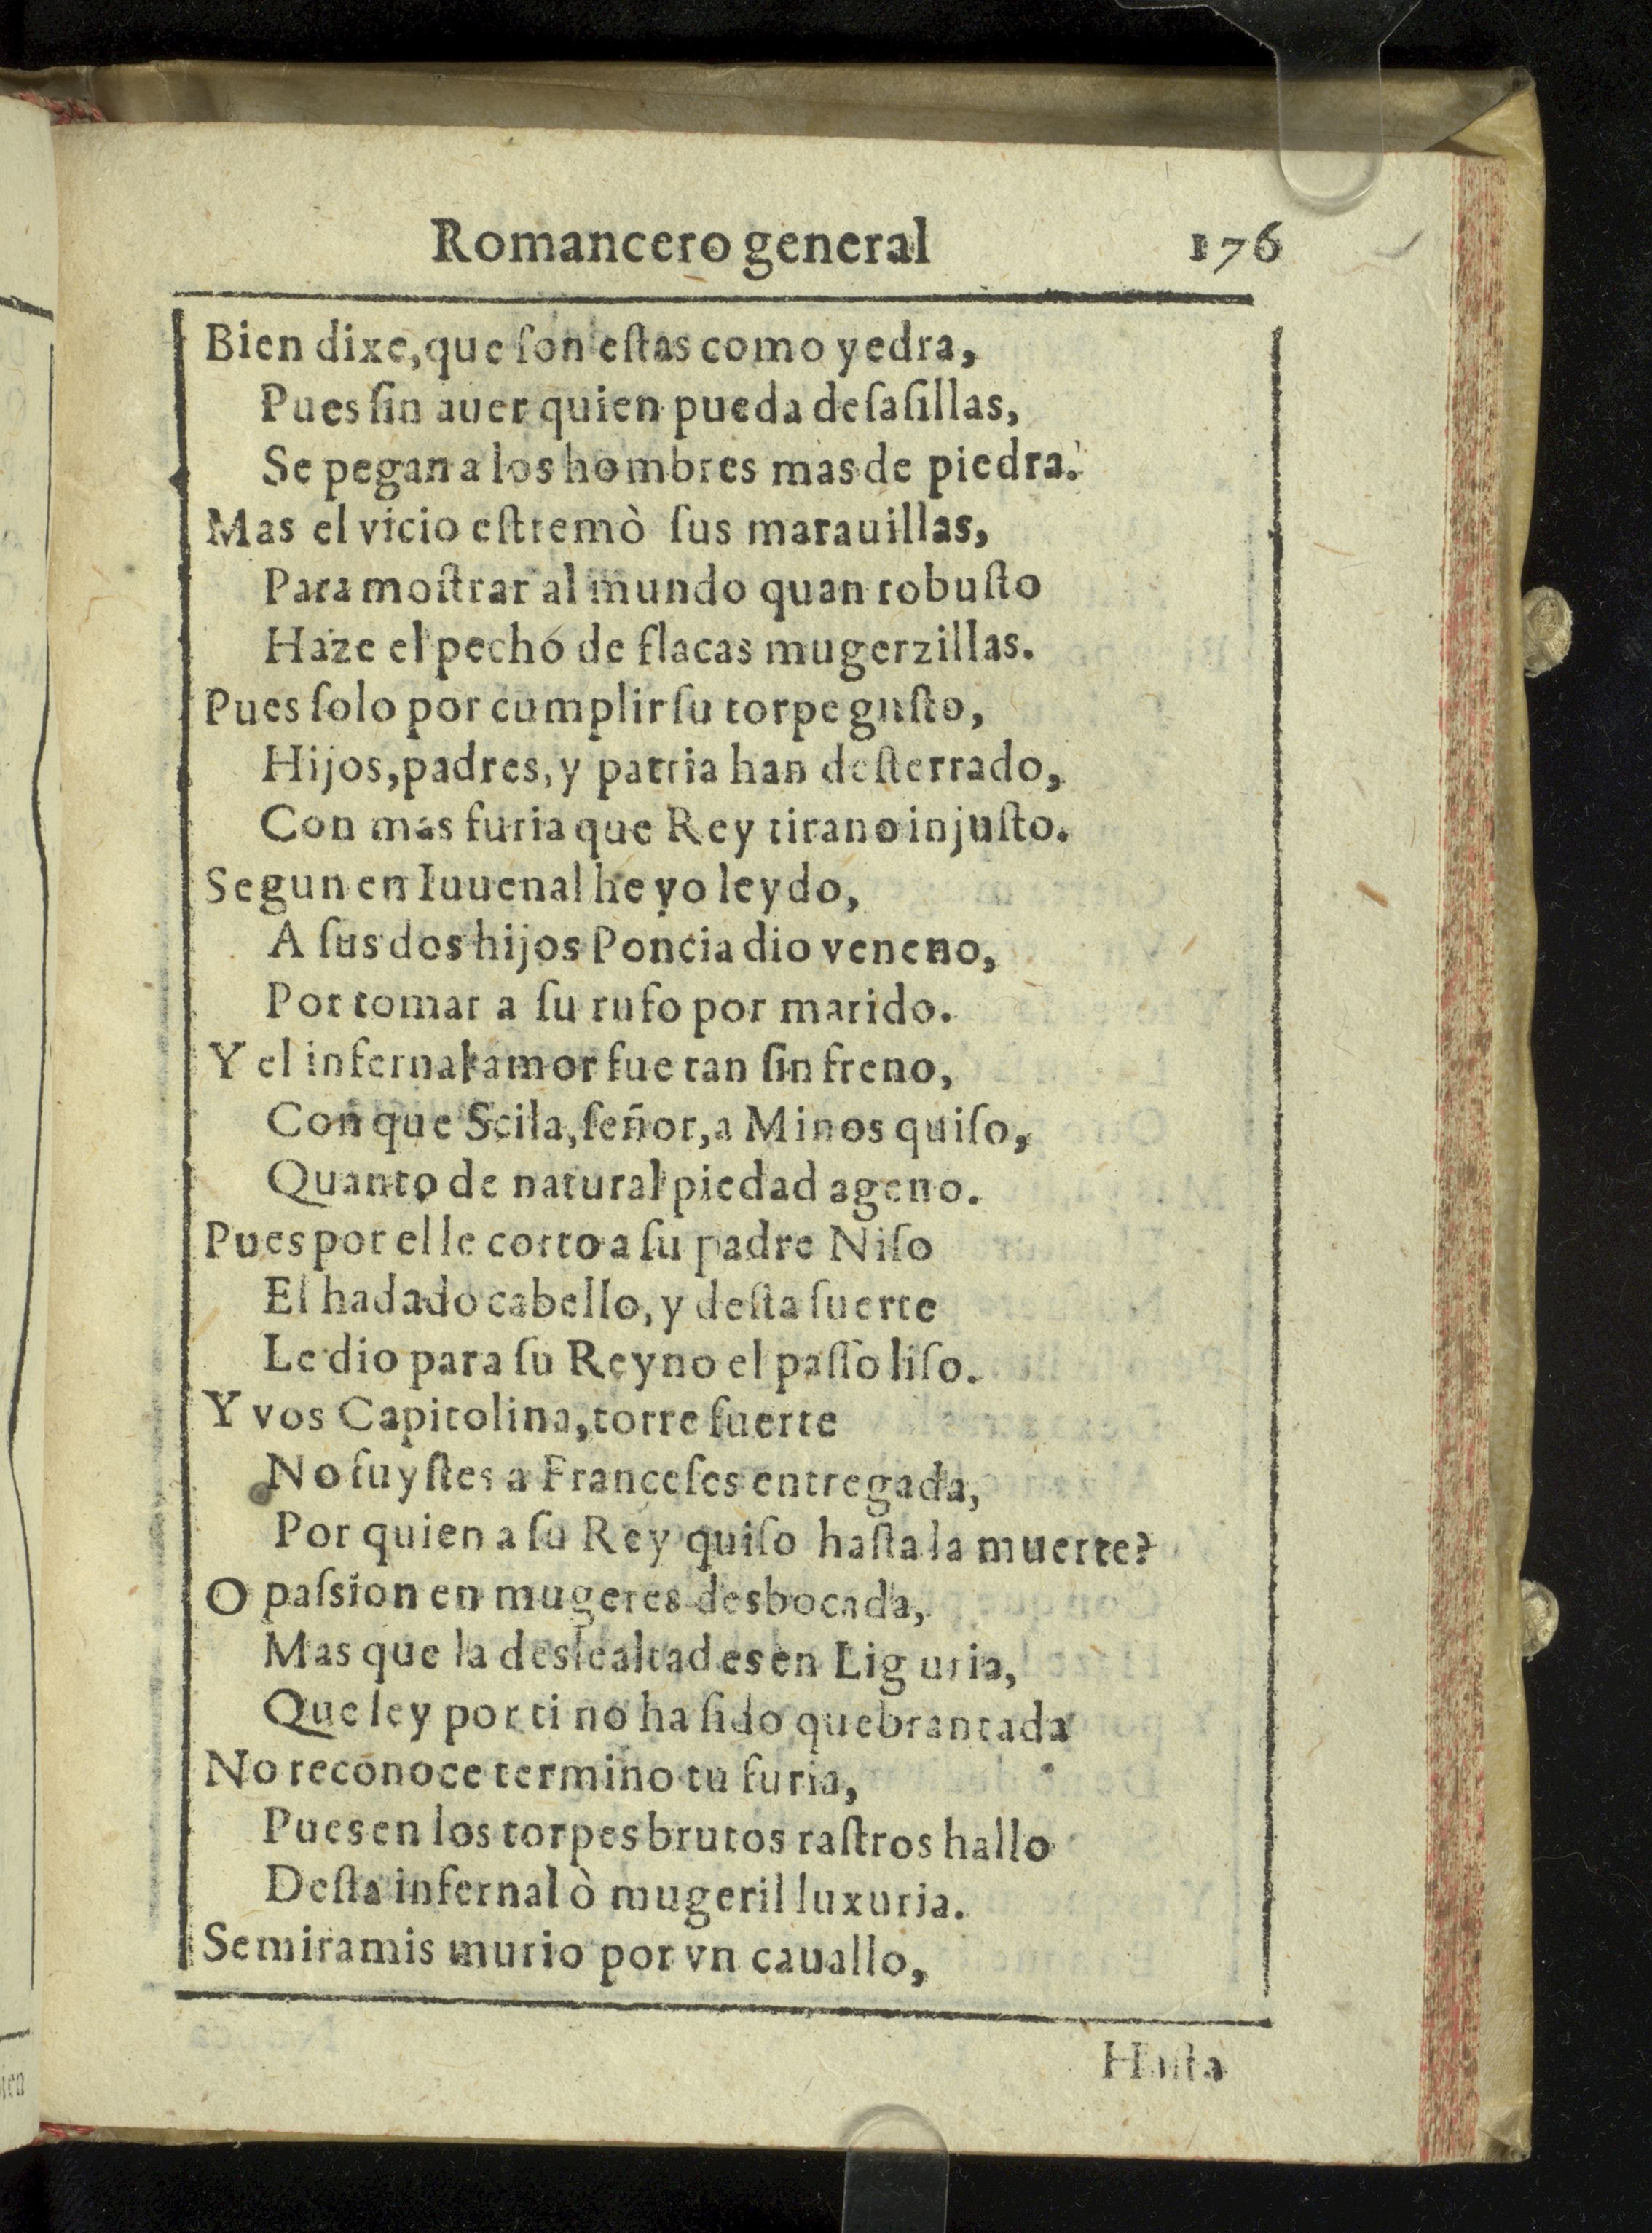 Romancero general 176
Bien dixe, que ſon eſtas como yedra,
Pues ſin auer quien pueda deſaſillas,
Se pegan a los hombres mas de piedra.
Mas el vicio eſtremò ſus marauillas,
Para moſtrar al mundo quan robuſto
Haze el pecho de flacas mugerzillas.
Pues ſolo por cumplir ſu torpe guſto,
Hijos, padres, y patria han deſterrado,
Con mas furia que Rey tirano injuſto.
Segun en Iuuenal he yo leydo,
A ſus dos hijos Poncia dio veneno,
Por tomar a ſu rufo por marido.
Y el infernal amor fue tan ſin freno,
Con que Scila, ſeñor, a Minos quiſo,
Quanto de natural piedad ageno.
Pues por el le corto a ſu padre Niſo
El hadado cabello, y deſta ſuerte
Le dio para ſu Reyno el paſſo liſo.
Y vos Capitolina, torre fuerte
No fuyſtes a Franceſes entregada,
Por quien a ſu Rey quiſo haſta la muerte?
O paſsion en mugeres desbocada,
Mas que la deslealtad es en Liguria,
Que ley por ti no ha ſido quebrantada
No reconoce termino tu furia,
Pues en los torpes brutos raſtros hallo
Deſta infernal ò mugeril luxuria.
Semiramis murio por vn cauallo,
Haſta
ien